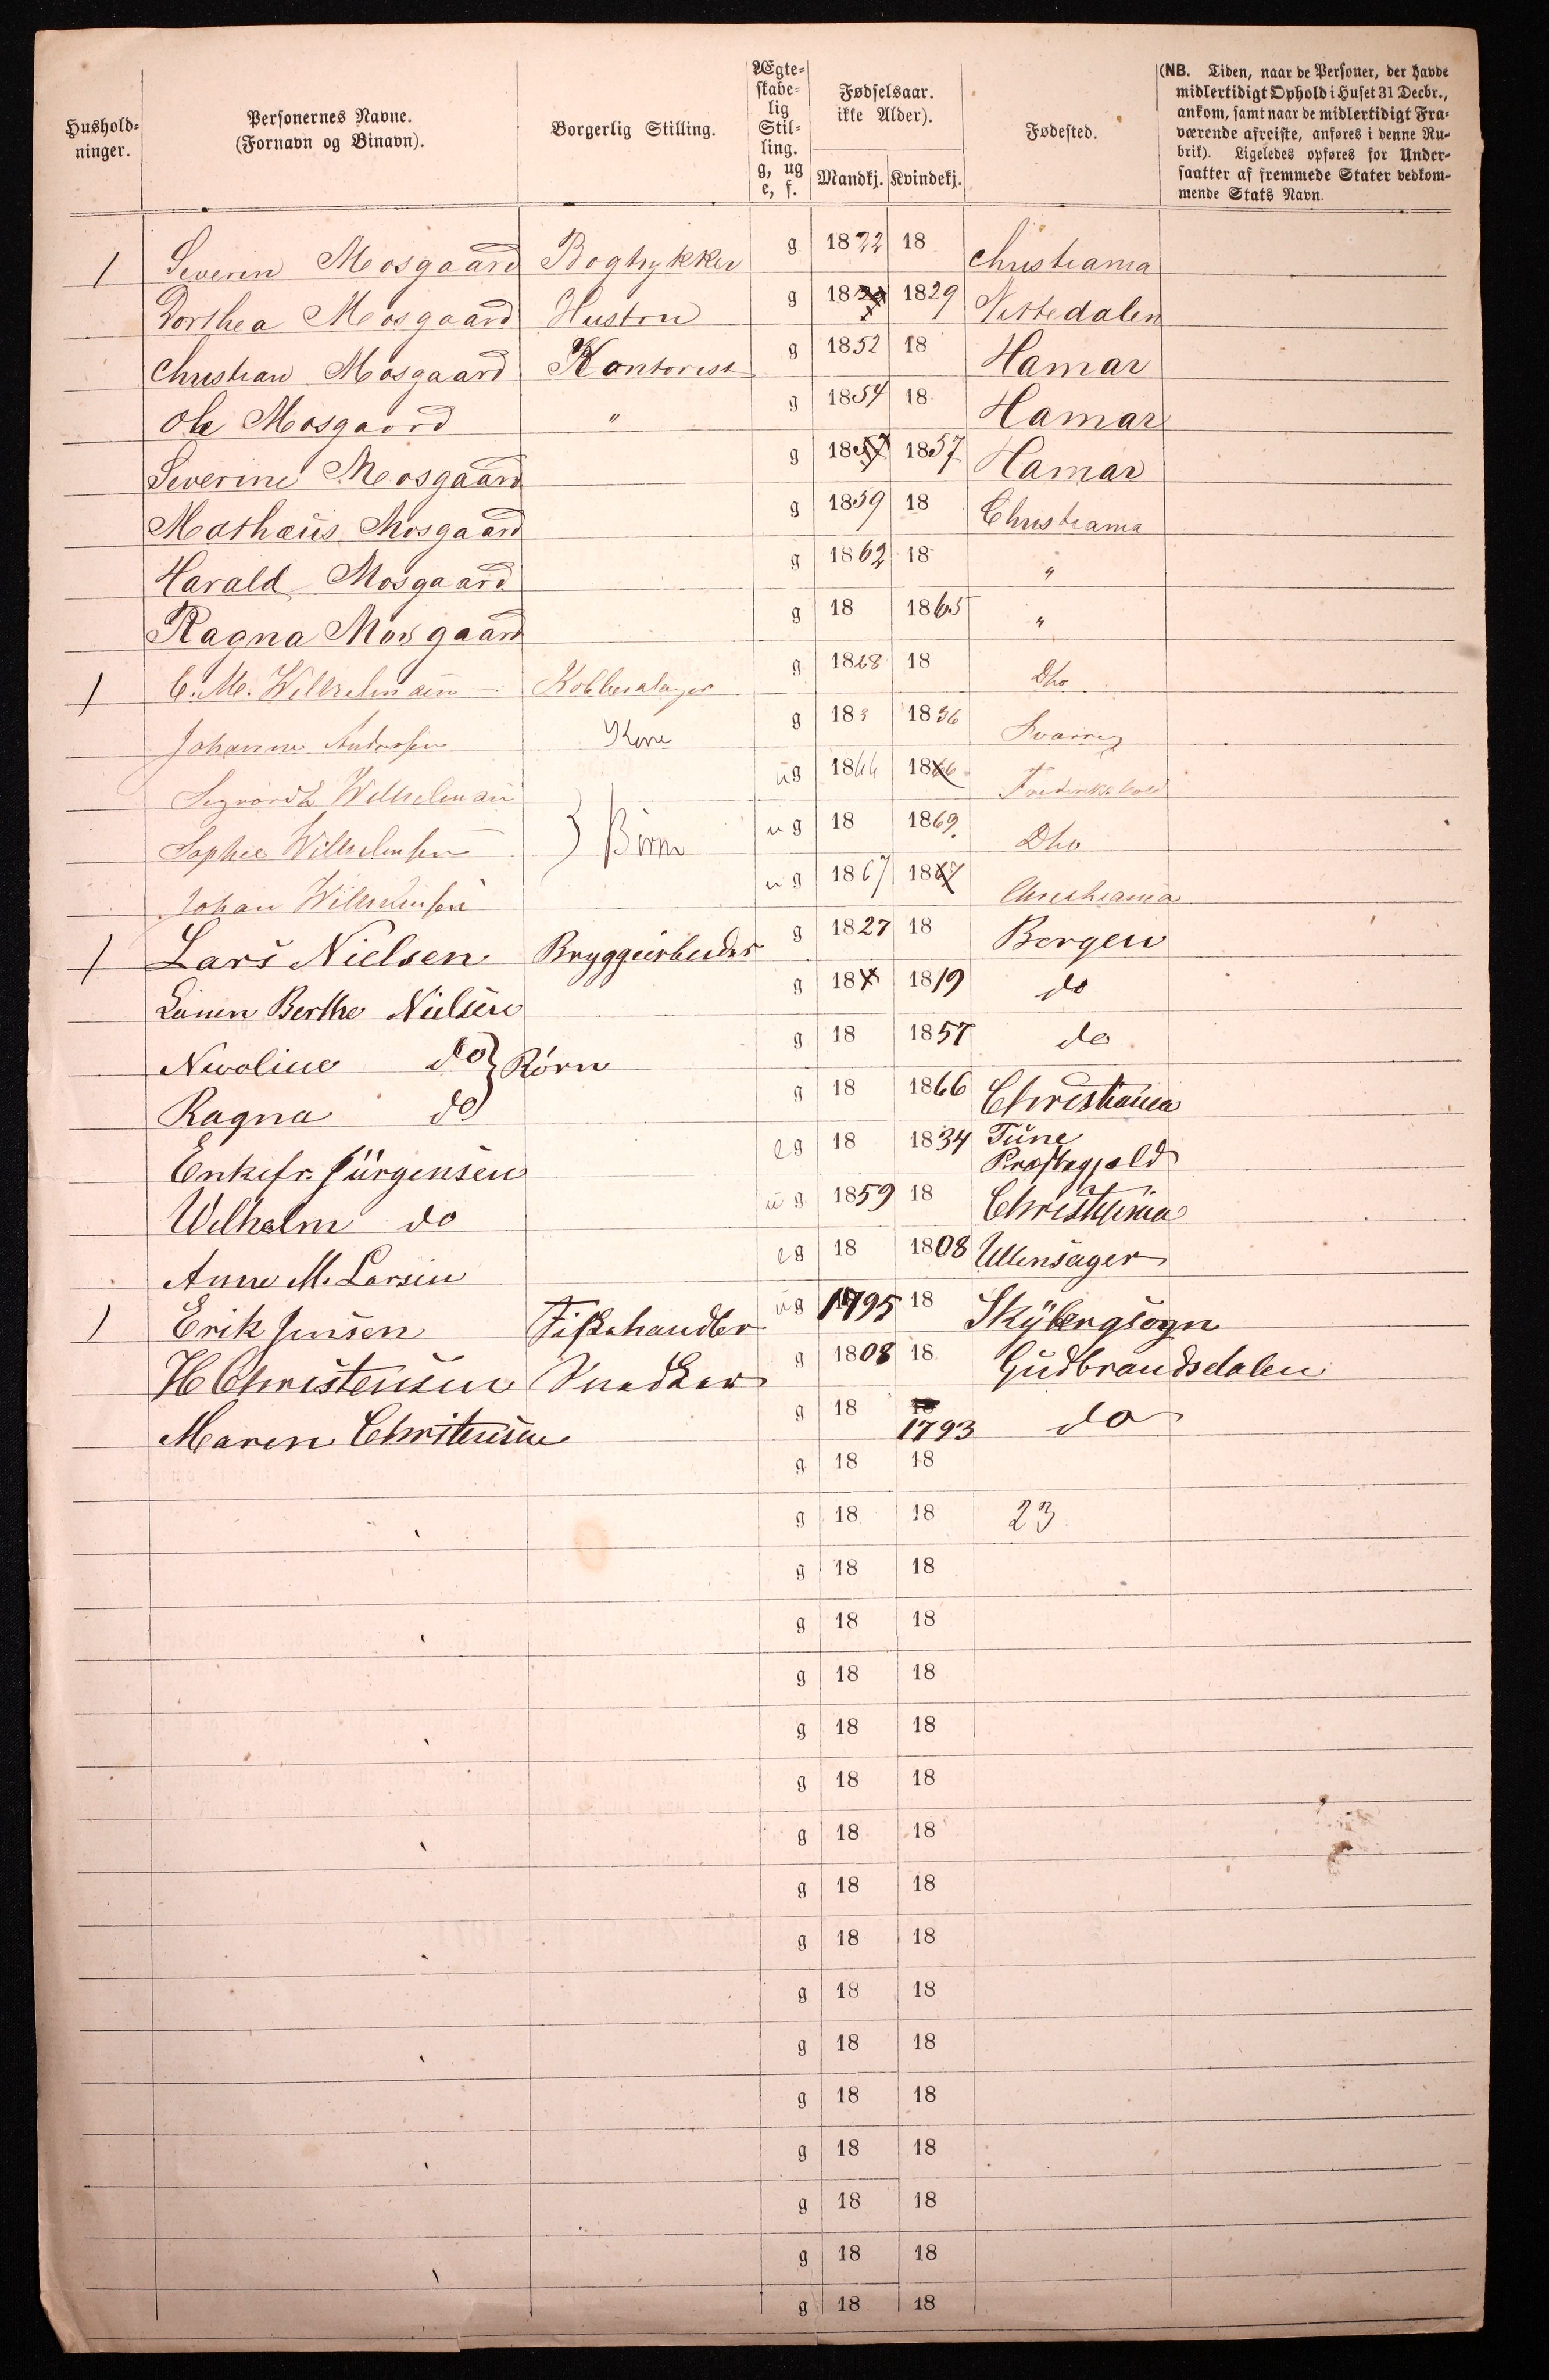 Hushold-
ninger.
Personernes Navne.
(Fornavn og Binavn).
Borgerlig Stilling.
Ægte-
skabe-
lig
Stil-
ling.
g, ug
e, f.
Fødselsaar.
ikke Alder).
Mandkj. Kvindekj.
Fødested.
(NB. Tiden, naar de Personer, der havde
midlertidigt Ophold i Huset 31 Decbr.,
ankom, samt naar de midlertidigt Fra-
værende afreiste, anføres i denne Ru-
brik). Ligeledes opføres for Under-
saatter af fremmede Stater vedkom-
mende Stats Navn.
1 Severin Mosgaard Bogtrykker g 1822 18 Christiania
Dorthea Mosgaard Hustru g 18 1829 Nittedalen
Christian Mosgaard Kontorist g 1852 18 Hamar
Ole Mosgaard " g 1854 18 Hamar
Severine Mosgaard g 1857 1857 Hamar
Mathæus Mosgaard g 1859 18 Christiania
Harald Mosgaard g 1862 18 "
Ragna Mosgaard g 18 1865 "
1 C. M. Wilhelmsen Kobberslager g 1828 18 Dho
Johanne Andersen Kone g 183 1836
Wilhelmsen ug 1866 1866 Frederikshald
Sophie Wilhelmsen } Børn ug 18 1869 Dho
Johan Wilhelmsen ug 1867 1867 Christiania
1 Lars Nielsen Bryggeirbeider g 1827 18 Bergen
Berthe Nielsen g 18 1819 do
Nicoline do } Børn g 18 1857 do
Ragna do g 18 1866 Christiania
Enkefr. Jürgensen eg 18 1834 Tune
Præstegjæld
Wilhelm do ug 1859 18 Christiania
Anne M. Larsen eg 18 1808 Ullensager
1 Erik Jensen Fiskehandler ug 1795 18 Skybergsogn
H Christensen Snedker g 1808 18 Gudbrandsdalen
Maren Chritensen g 18 18
1793 do
g 18 18
g 18 18 23
g 18 18
g 18 18
g 18 18
g 18 18
g 18 18
g 18 18
g 18 18
g 18 18
g 18 18
g 18 18
g 18 18
g 18 18
g 18 18
g 18 18
g 18 18